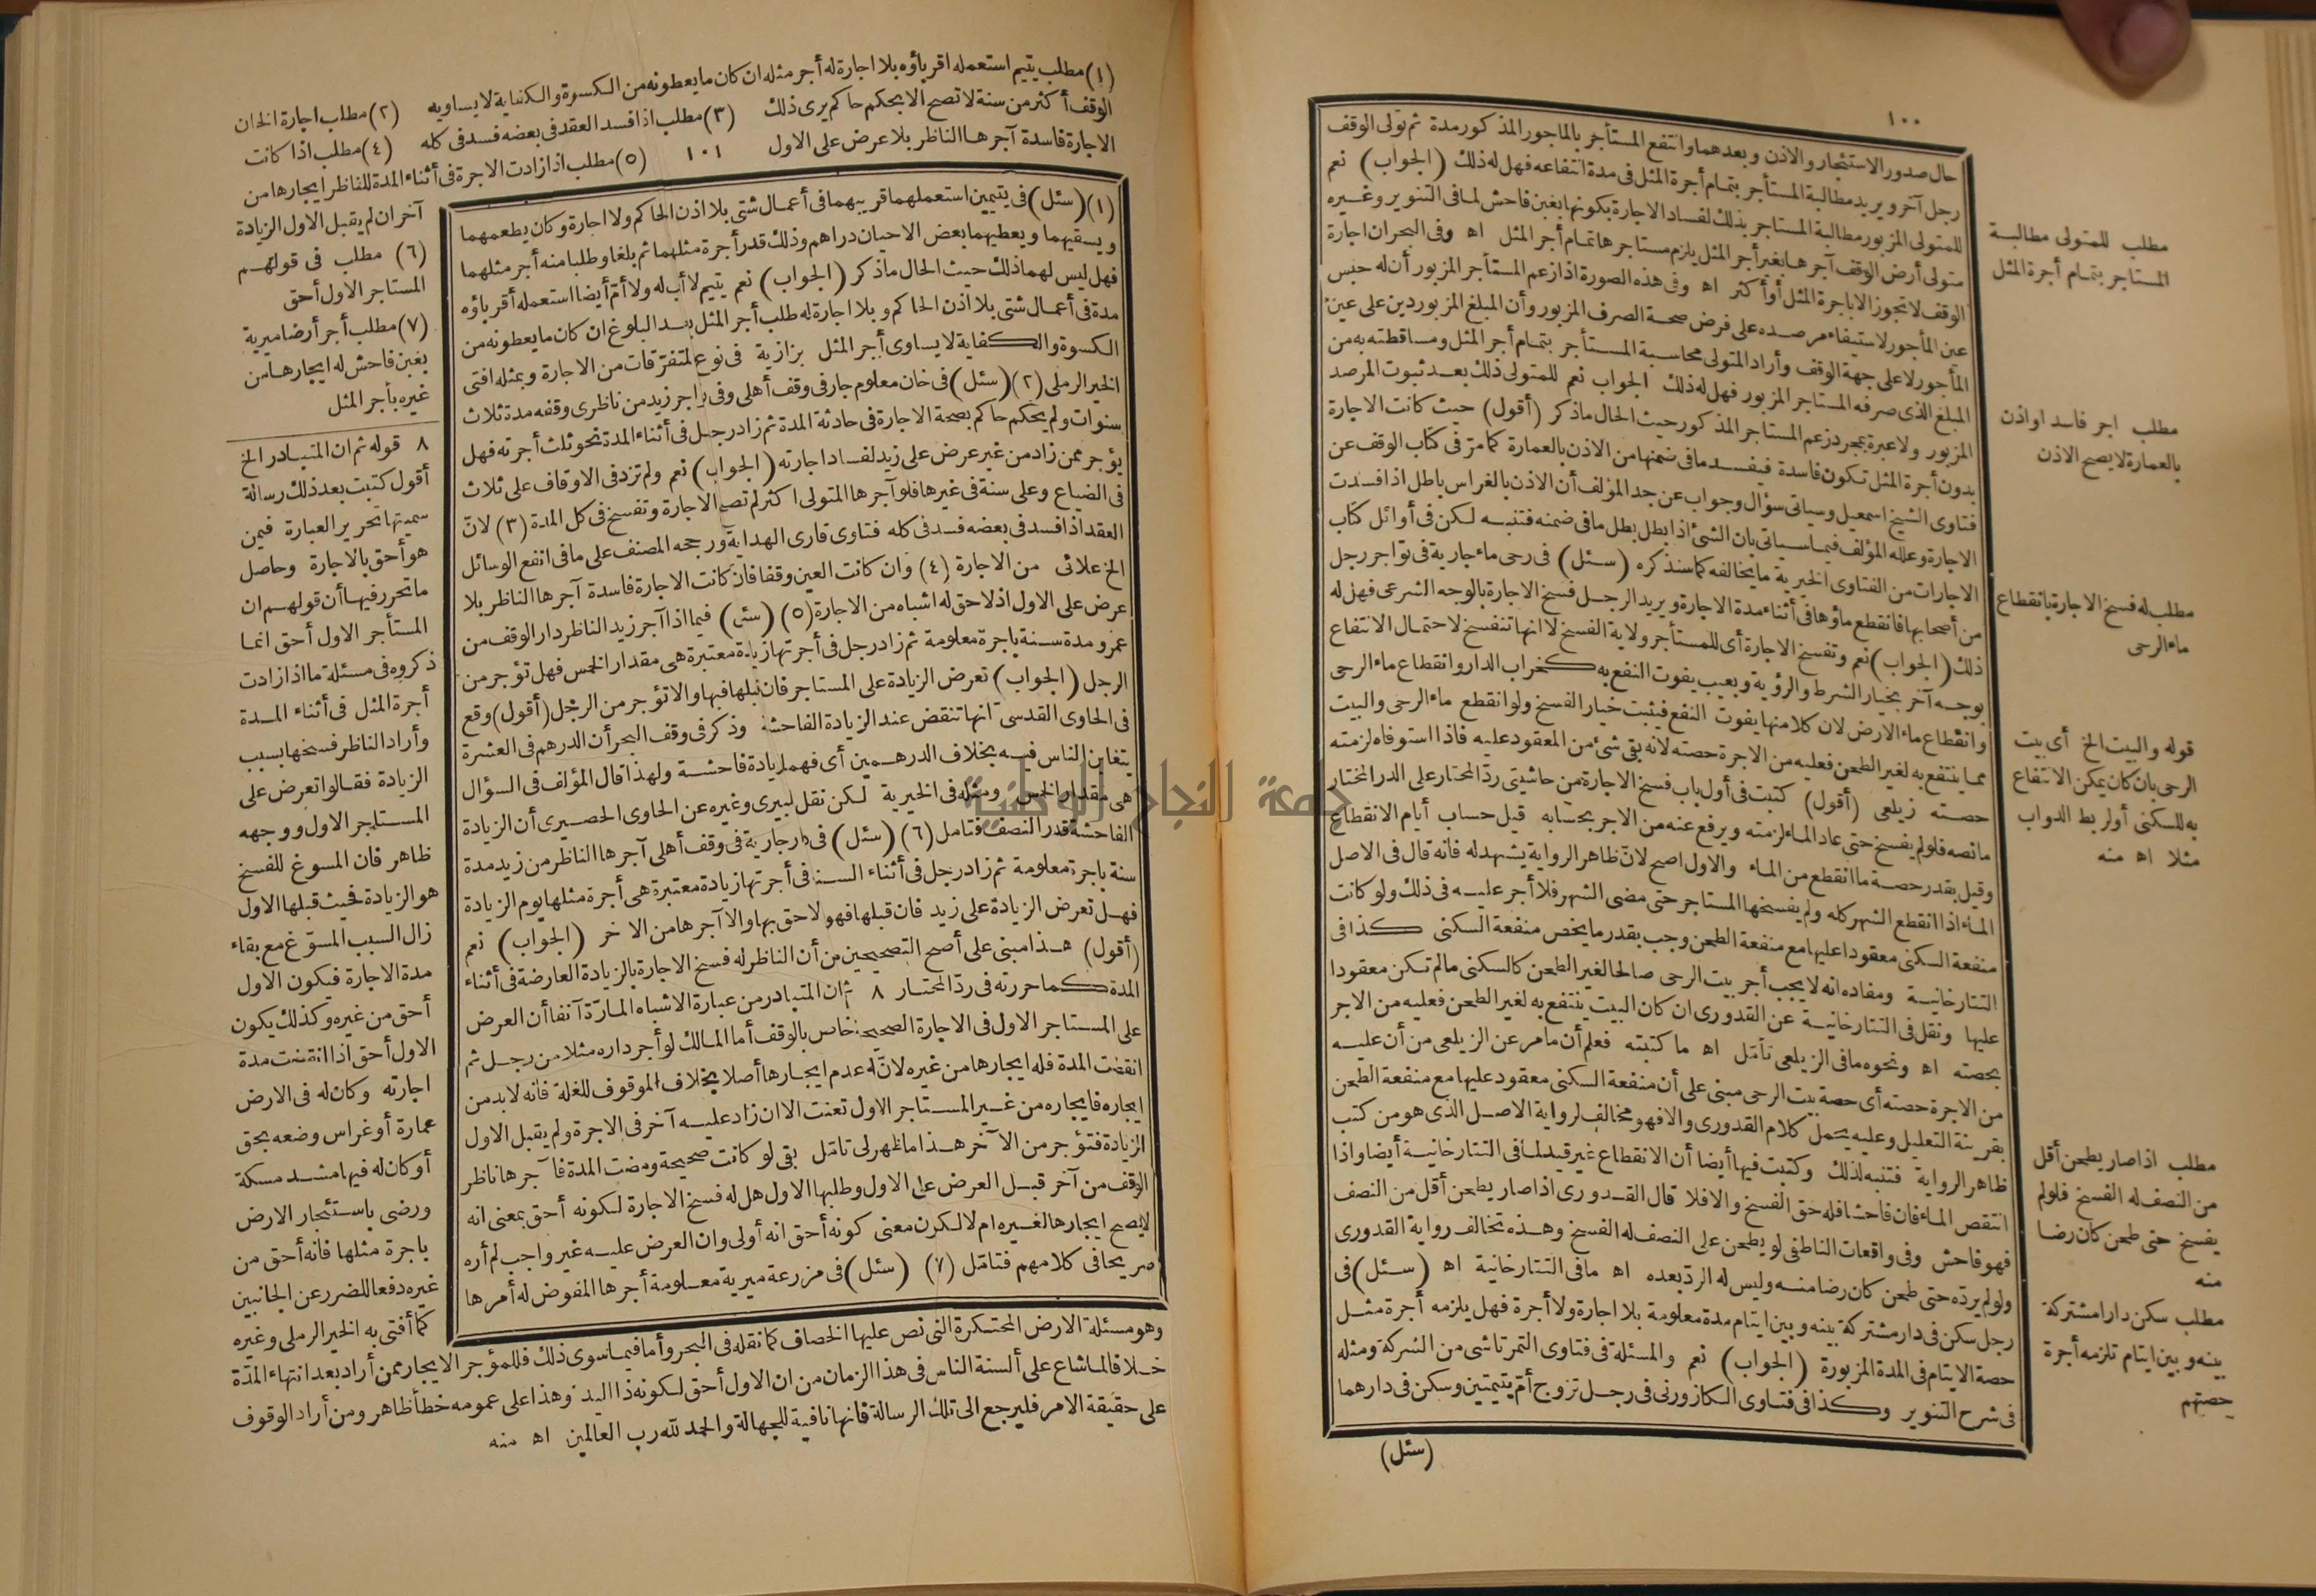 ١٠٠
حال صدور الاستئجار والاذن وبعدهما وانتفع المستأجر بالمأجور المذكور مدة ثم تولى الوقف
رجل آخر ويريد مطالبة المستأجر بتمام أجرة المثل فى مدة انتفاعه فهل له ذلك (الجواب) نعم
للمتولى المزبور مطالبة المستاجر بذلك لفساد الاجارة بكونها بغبن فاحش لما فى التنوير وغيره
متولى أرض الوقف آجرها بغير أجر المثل يلزم مستاجرها تمام أجر المثل اه وفى البحر ان اجارة
الوقف لا تجوز الا باجرة المثل أو أكثر اه وفى هذه الصورة اذا زعم المستأجر المزبور أن له حبس
عين المأجور لاستيفاء مرصده على فرض صحة الصرف المزبور وأن المبلغ المزبور دين على عين
المأجور لا على جهة الوقف وأراد المتولى محاسبة المستأجر بتمام أجر المثل ومساقطته به من
المبلغ الذى صرفه المستاجر المزبور فهل له ذلك الجواب نعم للمتولى ذلك بعد ثبوت المرصد
المزبور ولا عبرة بمجرد زعم المستاجر المذكور حيث الحال ما ذكر (أقول) حيث كانت الاجارة
بدون أجرة المثل تكون فاسدة فيفسد ما فى ضمنها من الاذن بالعمارة كما مر فى كتاب الوقف عن
فتاوى الشيخ اسمعيل وسياتى سؤال وجواب عن جد المؤلف أن الاذن بالغراس باطل اذا فسدت
الاجارة وعلله المؤلف فيما سياتى بان الشئ اذا بطل بطل ما فى ضمنه فتنبه لكن فى أوائل كتاب
الاجارات من الفتاوى الخيرية ما يخالفه كما سنذكره (سئل) فى رحى ماء جارية فى تواجر رجل
من أصحابها فانقطع ماؤها فى أثناء مدة الاجارة ويريد الرجل فسخ الاجارة بالوجه الشرعى فهل له
ذلك (الجواب) نعم وتفسخ الاجارة أى للمستأجر ولاية الفسخ لا انها تنفسخ لاحتمال الانتفاع
بوجه آخر بخيار الشرط والرؤية وبعيب يفوت النفع به كخراب الدار وانقطاع ماء الرحى
وانقطاع ماء الارض لان كلا منها يفوت النفع فيثبت خيار الفسخ ولو انقطع ماء الرحى والبيت
مما ينتفع به لغير الطحن فعليه من الاجرة حصته لانه بقى شئ من المعقود عليه فاذا استوفاه لزمته
حصته زيلعى (أقول) كتبت فى أول باب فسخ الاجارة من حاشيتى رد المحتار على الدر المختار
ما نصه فلو لم يفسخ حتى عاد الماء لزمته ويرفع عنه من الاجر بحسابه قيل حساب أيام الانقطاع
وقيل بقدر حصة ما انقطع من الماء والاول اصح لان ظاهر الرواية يشهد له فانه قال فى الاصل
الماء اذا انقطع الشهر كله ولم يفسخها المستاجر حتى مضى الشهر فلا أجر عليه فى ذلك ولو كانت
منفعة السكنى معقودا عليها مع منفعة الطحن وجب بقدر ما يخص منفعة السكنى كذا فى
التتارخانية ومفاده انه لا يجب أجر بيت الرحى صالحا لغير الطحن كالسكنى ما لم تكن معقودا
عليها ونقل فى التتارخانية عن القدورى ان كان البيت ينتفع به لغير الطحن فعليه من الاجر
بحصته اه ونحوه ما فى الزيلعى تأمل اه ما كتبته فعلم أن ما مر عن الزيلعى من أن عليه
من الاجرة حصته أى حصة بيت الرحى مبنى على أن منفعة السكنى معقود عليها مع منفعة الطحن
بقرينة التعليل وعليه يحمل كلام القدورى والا فهو مخالف لرواية الاصل الذى هو من كتب
ظاهر الرواية فتنبه لذلك وكتبت فيها أيضا أن الانقطاع غير قيد لما فى التتارخانية أيضا واذا
انتقص الماء فان فاحشا فله حق الفسخ والا فلا قال القدورى اذا صار يطحن أقل من النصف
فهو فاحش وفى واقعات الناطفى لو يطحن على النصف له الفسخ وهذه تخالف رواية القدورى
ولو لم يرده حتى طحن كان رضا منه وليس له الرد بعده اه ما فى التتارخانية اه (سئل) فى
رجل سكن فى دار مشتركة بينه وبين ايتام مدة معلومة بلا اجارة ولا أجرة فهل يلزمه أجرة مثل
حصة الايتام فى المدة المزبورة (الجواب) نعم والمسئلة فى فتاوى التمرتاشى من الشركة ومثله
فى شرح التنوير وكذا فى فتاوى الكازورنى فى رجل تزوج أم يتيمتين وسكن فى دارهما
(سئل)
مطلب للمتولى مطالبة
المستاجر بتمام أجرة المثل
مطلب اجر فاسد او اذن
بالعمارة لا يصح الاذن
مطلب له فسخ الاجارة بانقطاع
ماء الرحى
قوله والبيت الخ أى بيت
الرحى بان كان يمكن الانتفاع
به للسكنى أو لربط الدواب
مثلا اه منه
مطلب اذا صار يطحن أقل
من النصف له الفسخ فلو لم
يفسخ حتى طحن كان رضا
منه
مطلب سكن دارا مشتركة
بينه وبين ايتام تلزمه أجرة
حصتهم
(١) مطلب يتيم استعمله اقرباؤه بلا اجارة له أجر مثله ان كان ما يعطونه من الكسوة والكفاية لا يساويه (٢) مطلب اجارة الخان
الوقف أكثر من سنة لا تصح الا بحكم حاكم يرى ذلك (٣) مطلب اذا فسد العقد فى بعضه فسد فى كله (٤) مطلب اذا كانت
الاجارة فاسدة آجرها الناظر بلا عرض على الاول ١٠١ (٥) مطلب اذا زادت الاجرة فى أثناء المدة للناظر ايجارها من
آخر ان لم يقبل الاول الزيادة
(٦) مطلب فى قولهم
المستاجر الاول أحق
(٧) مطلب أجر أرضا ميرية
بغبن فاحش له ايجارها من
غيره بأجر المثل
(١) (سئل) فى يتيمين استعملهما قريبهما فى أعمال شتى بلا اذن الحاكم ولا اجارة وكان يطعمهما
ويسقيهما ويعطيهما بعض الاحيان دراهم وذلك قدر أجرة مثلهما ثم بلغا وطلبا منه أجر مثلهما
فهل ليس لهما ذلك حيث الحال ما ذكر (الجواب) نعم يتيم لا أب له ولا أم أيضا استعمله أقرباؤه
مدة فى أعمال شتى بلا اذن الحاكم وبلا اجارة له طلب أجر المثل بعد البلوغ ان كان ما يعطونه من
الكسوة والكفاية لا يساوى أجر المثل بزازية فى نوع المتفرقات من الاجارة وبمثله افتى
الخير الرملى (٢) (سئل) فى خان معلوم جار فى وقف أهلى وفى تواجر زيد من ناظرى وقفه مدة ثلاث
سنوات ولم يحكم حاكم بصحة الاجارة فى حادثة المدة ثم زاد رجل فى أثناء المدة نحو ثلث أجرته فهل
يؤجر ممن زاد من غير عرض على زيد لفساد اجارته (الجواب) نعم ولم تزد فى الاوقاف على ثلاث
فى الضياع وعلى سنة فى غيرها فلو آجرها المتولى اكثر لم تصح الاجارة وتفسخ فى كل المدة (٣) لان
العقد اذا فسد فى بعضه فسد فى كله فتاوى قارى الهداية ورجحه المصنف على ما فى انفع الوسائل
الخ علائى من الاجارة (٤) وان كانت العين وقفا فان كانت الاجارة فاسدة آجرها الناظر بلا
عرض على الاول اذ لا حق له اشباه من الاجارة (٥) (سئل) فيما اذا آجر زيد الناظر دار الوقف من
عمرو مدة سنة باجرة معلومة ثم زاد رجل فى أجرتها زيادة معتبرة هى مقدار الخمس فهل تؤجر من
الرجل (الجواب) تعرض الزيادة على المستاجر فان قبلها فبها والا تؤجر من الرجل (أقول) وقع
فى الحاوى القدسى انها تنقض عند الزيادة الفاحشة وذكر فى وقف البحر أن الدرهم فى العشرة
يتغابن الناس فيه بخلاف الدرهمين أى فهما زيادة فاحشة ولهذا قال المؤلف فى السؤال
هى مقدار الخمس ومثله فى الخيرية لكن نقل البيرى وغيره عن الحاوى الحصيرى أن الزيادة
الفاحشة قدر النصف فتامل (٦) (سئل) فى دار جارية فى وقف أهلى آجرها الناظر من زيد مدة
سنة باجرة معلومة ثم زاد رجل فى أثناء السنة فى أجرتها زيادة معتبرة هى أجرة مثلها يوم الزيادة
فهل تعرض الزيادة على زيد فان قبلها فهو لاحق بها والا آجرها من الآخر (الجواب) نعم
(أقول) هذا مبنى على أصح التصحيحين من أن الناظر له فسخ الاجارة بالزيادة العارضة فى أثناء
المدة كما حررته فى رد المحتار ٨ ثم ان المتبادر من عبارة الاشباه المارة آنفا أن العرض
على المستاجر الاول فى الاجارة الصحيحة خاص بالوقف أما المالك لو أجر داره مثلا من رجل ثم
انقضت المدة فله ايجارها من غيره لان له عدم ايجارها أصلا بخلاف الموقوف للغلة فانه لا بد من
ايجاره فايجاره من غير المستاجر الاول تعنت الا ان زاد عليه آخر فى الاجرة ولم يقبل الاول
الزيادة فتؤجر من الآخر هذا ما ظهر لى تامل بقى لو كانت صحيحة ومضت المدة فآجرها ناظر
الوقف من آخر قبل العرض على الاول وطلبها الاول هل له فسخ الاجارة لكونه أحق بمعنى انه
لا يصح ايجارها لغيره ام لا لكون معنى كونه أحق انه أولى وان العرض عليه غير واجب لم أره
صريحا فى كلامهم فتامل (٧) (سئل) فى مزرعة ميرية معلومة أجرها المفوض له أمرها
٨ قوله ثم ان المتبادر الخ
أقول كتبت بعد ذلك رسالة
سميتها تحرير العبارة فيمن
هو أحق بالاجارة وحاصل
ما تحرر فيها أن قولهم ان
المستأجر الاول أحق انما
ذكروه فى مسئلة ما اذا زادت
أجرة المثل فى أثناء المدة
وأراد الناظر فسخها بسبب
الزيادة فقالوا تعرض على
المستاجر الاول ووجهه
ظاهر فان المسوغ للفسخ
هو الزيادة فحيث قبلها الاول
زال السبب المسوغ مع بقاء
مدة الاجارة فيكون الاول
أحق من غيره وكذلك يكون
الاول أحق اذا انقضت مدة
اجارته وكان له فى الارض
عمارة أو غراس وضعه بحق
أو كان له فيها مشد مسكة
ورضى باستئجار الارض
باجرة مثلها فانه أحق من
غيره دفعا للضرر عن الجانبين
كما أفتى به الخير الرملى وغيره
وهو مسئلة الارض المحتكرة التى نص عليها الخصاف كما نقله فى البحر وأما فيما سوى ذلك فللمؤجر الايجار ممن أراد بعد انتهاء المدة
خلافا لما شاع على ألسنة الناس فى هذا الزمان من ان الاول أحق لكونه ذا اليد وهذا على عمومه خطأ ظاهر ومن أراد الوقوف
على حقيقة الامر فليرجع الى تلك الرسالة فانها نافية للجهالة والحمد لله رب العالمين اه منه
جامعة النجاح الوطنية